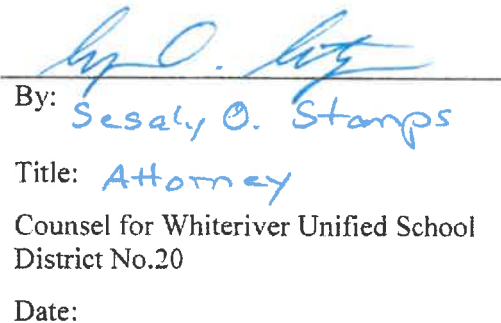 By: Sesaly O. Stamps
Title: Attorney
Counsel for Whiteriver Unified School
District No.20
Date: